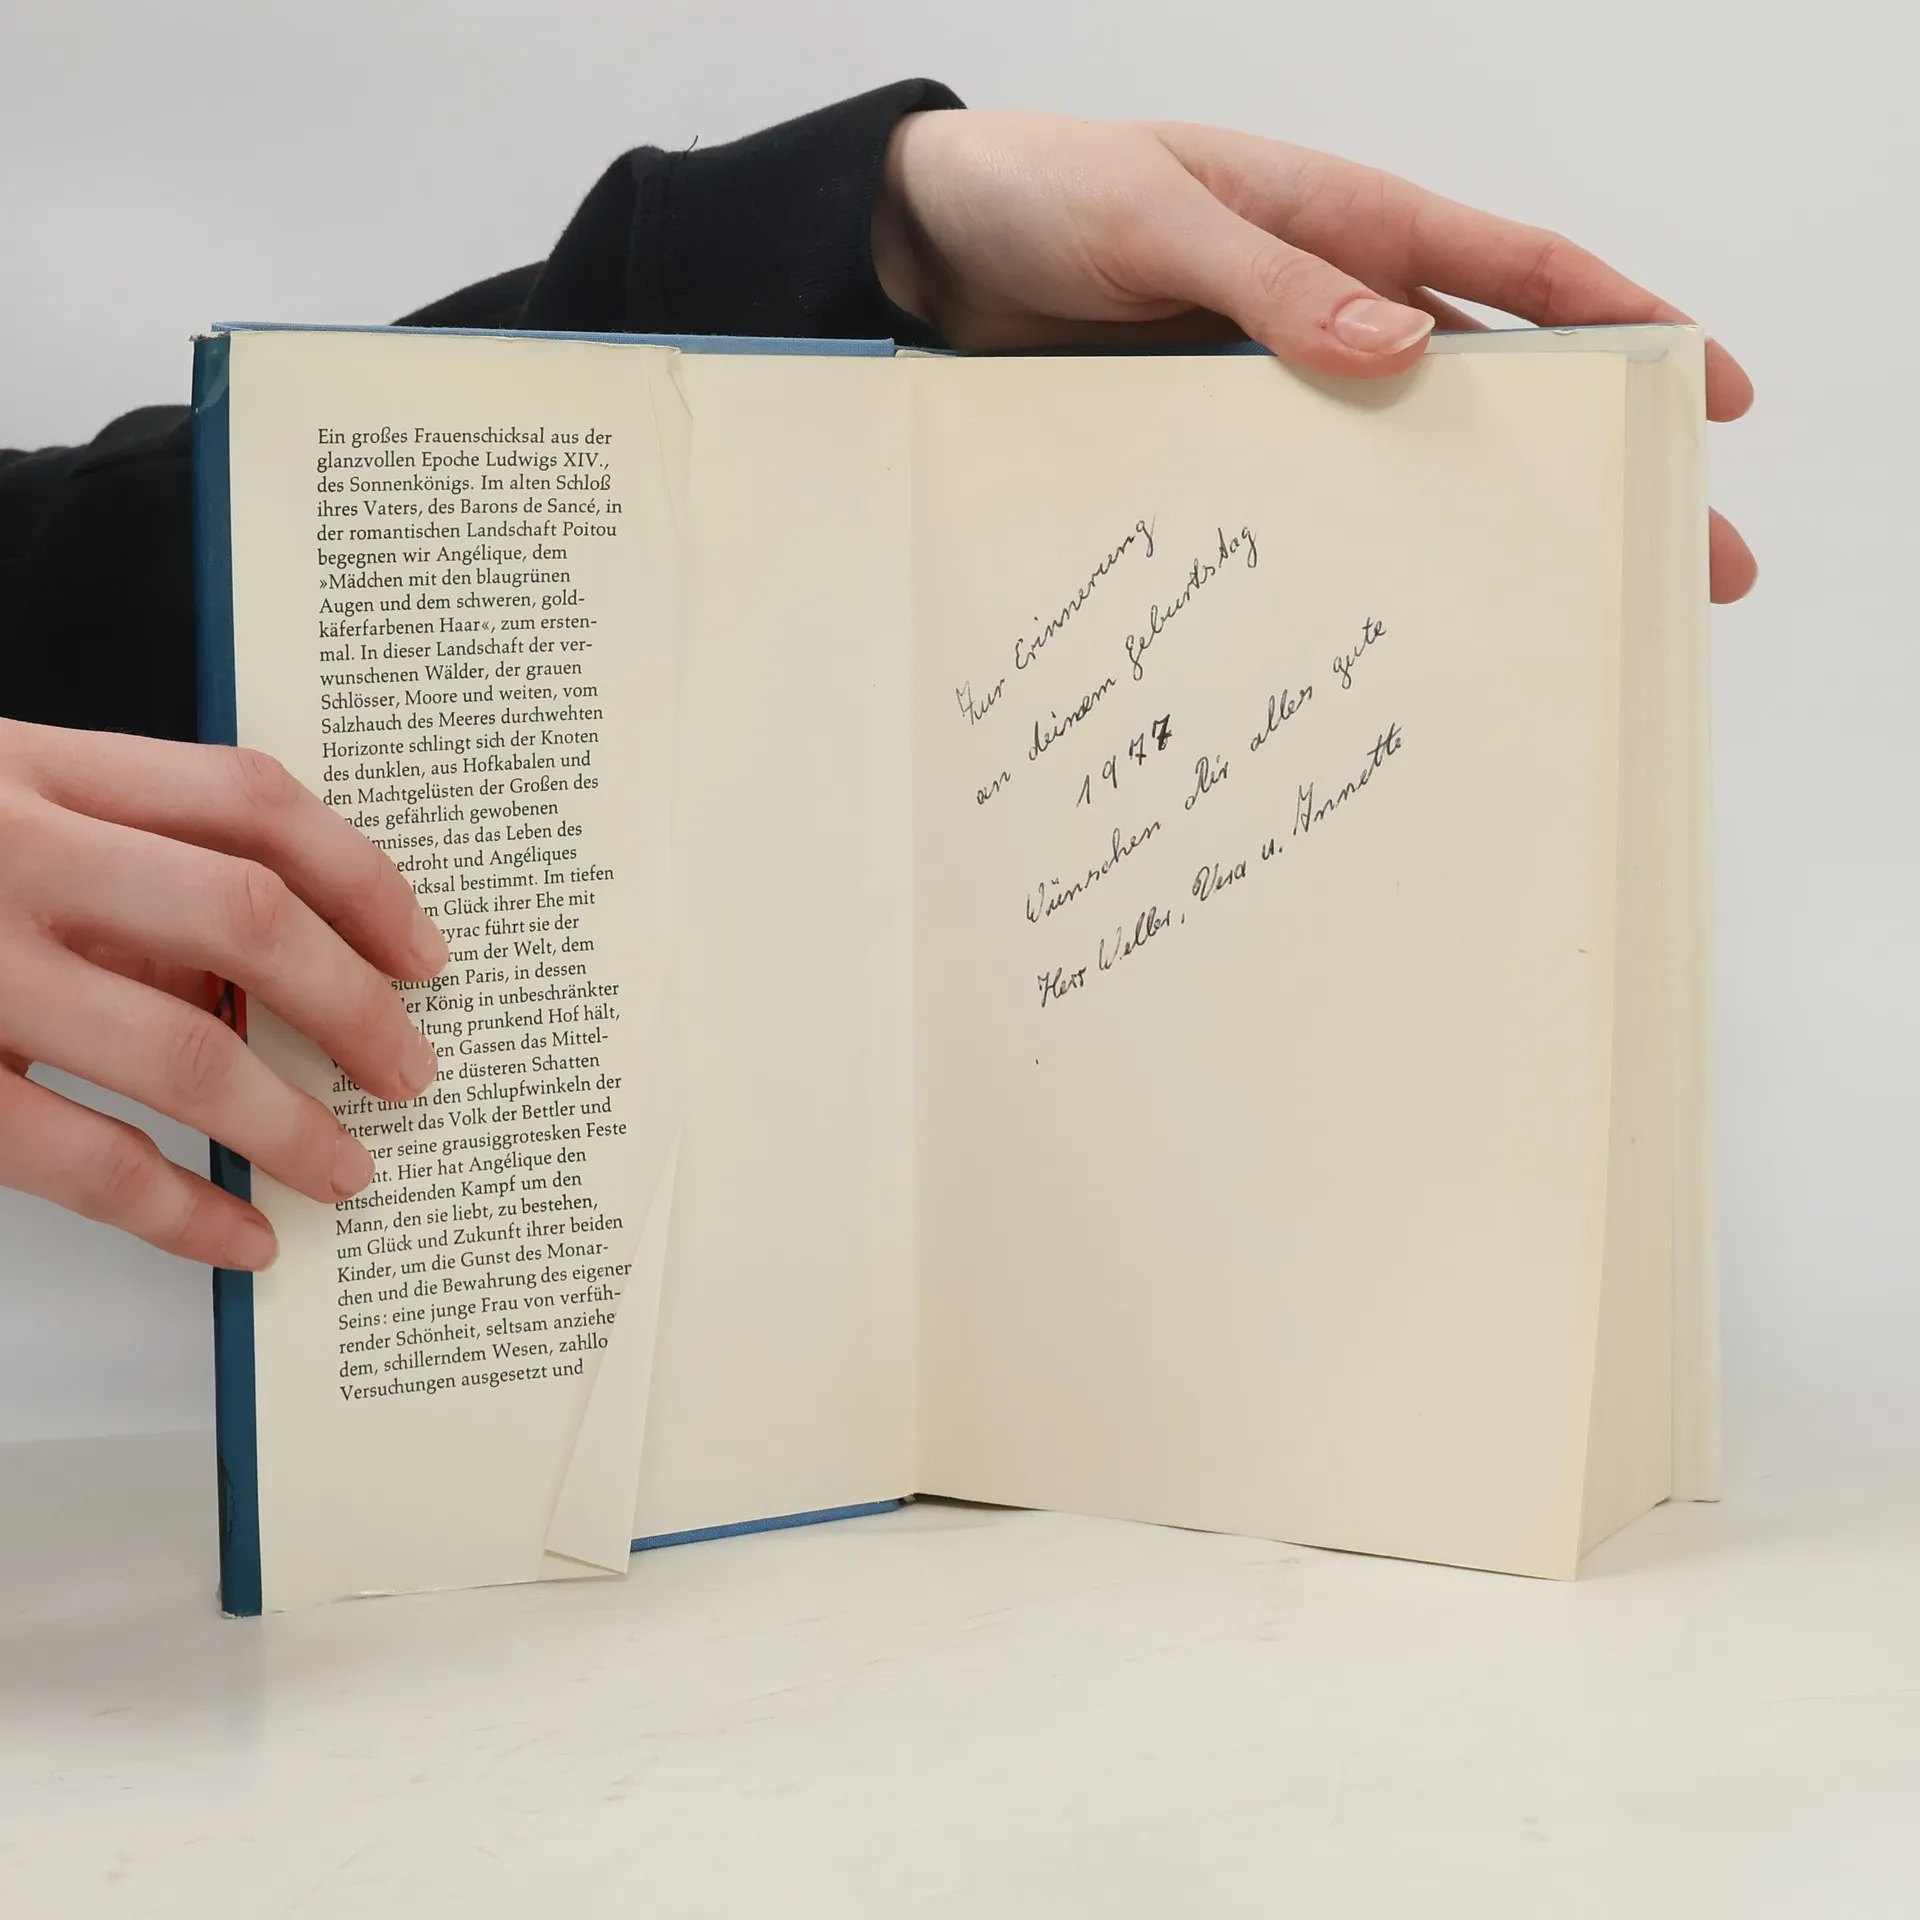 Ein großes Frauenschicksal aus der
glanzvollen Epoche Ludwigs XIV.,
des Sonnenkönigs. Im alten Schloß
ihres Vaters, des Barons de Sancé, in
der romantischen Landschaft Poitou
begegnen wir Angélique, dem
»Mädchen mit den blaugrünen
Augen und dem schweren, gold-
käferfarbenen Haar«, zum ersten-
mal. In dieser Landschaft der ver-
wunschenen Wälder, der grauen
Schlösser, Moore und weiten, vom
Salzhauch des Meeres durchwehten
Horizonte schlingt sich der Knoten
des dunklen, aus Hofkabalen und
den Machtgelüsten der Großen des
gefährlich gewobenen
das das Leben des
bedroht und Angéliques
bestimmt. Im tiefen
Glück ihrer Ehe mit
führt sie der
der Welt, dem
Paris, in dessen
der König in unbeschränkter
prunkend Hof hält,
Gassen das Mittel-
düsteren Schatten
wirft und in den Schlupfwinkeln der
Unterwelt das Volk der Bettler und
seine grausiggrotesken Feste
Hier hat Angélique den
entscheidenden Kampf um den
Mann, den sie liebt, zu bestehen,
um Glück und Zukunft ihrer beiden
Kinder, um die Gunst des Monar-
chen und die Bewahrung des eigenen
Seins: eine junge Frau von verfüh-
render Schönheit, seltsam
dem, schillerndem Wesen,
Versuchungen ausgesetzt und
Zur Erinnerung
an deinem geburtstag
1977
Wünschen Dir alles gute
Herr Weller, Vera u. Annette